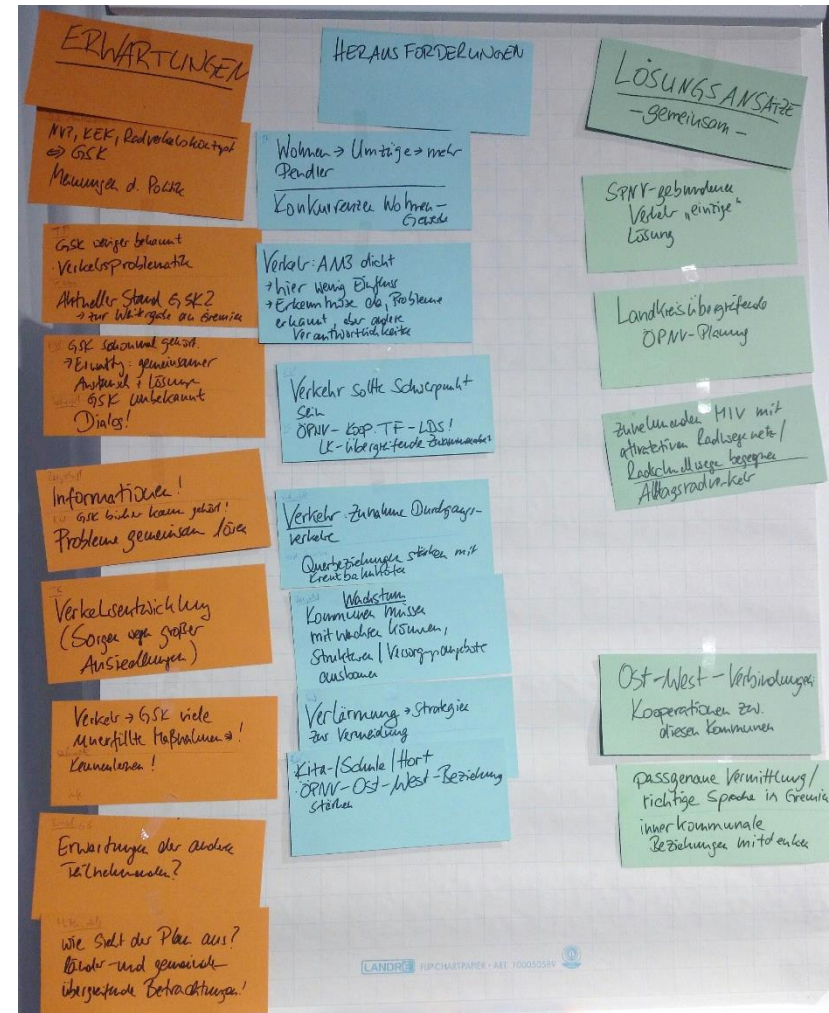 ERWARTUNGEN
NVP, KEK, Radverkehrskonzept
⇔ GSK
Meinungen d. Politik
GSK weniger bekannt
· Verkehrsproblematik
Aktueller Stand GSK?
→ zur Weitergabe an Gremien
GSK schonmal gehört.
→ Erwartg: gemeinsamer
Austausch + Lösungen
GSK unbekannt
Dialog!
Informationen!
GSK bisher kaum gehört!
Probleme gemeinsam lösen
Verkehrsentwicklung
(Sorgen wegen großer
Ansiedlungen)
Verkehr → GSK viele
unerfüllte Maßnahmen → !
Kennenlernen!
Erwartungen der andere
Teilnehmenden?
Wie sieht der Plan aus?
Länder- und gemeinde-
übergreifende Betrachtungen!
HERAUSFORDERUNGEN
Wohnen → Umzüge → mehr
Pendler
Konkurrenzen Wohnen –
Gewerbe
Verkehr: A113 dicht
→ hier wenig Einfluss
→ Erkenntnisse da, Probleme
erkannt, aber andere
Verantwortlichkeiten
Verkehr sollte Schwerpunkt
sein
ÖPNV-Koop. TF-LDS!
LK-übergreifende Zusammenarbeit
Verkehr · Zunahme Durchgangs-
verkehre
Querbeziehungen stärken mit
Kreuzbahnhöfen
Wachstum
Kommunen müssen
mitwachsen können,
Strukturen / Versorgungsangebote
ausbauen
Verlärmung → Strategien
zur Vermeidung
Kita-/Schule/Hort
· ÖPNV-Ost-West-Beziehung
stärken
LÖSUNGSANSÄTZE
– gemeinsam –
SPNV-gebundener
Verkehr „einzige"
Lösung
Landkreisübergreifende
ÖPNV-Planung
zunehmenden MIV mit
attraktiven Radwegenetz/
Radschnellwege begegnen
Alltagsradverkehr
Ost-West-Verbindungen
Kooperationen zw.
diesen Kommunen
passgenaue Vermittlung/
richtige Sprache in Gremien
innerkommunale
Beziehungen mitdenken
LANDRÉ FLIPCHARTPAPIER · ART. 100050589